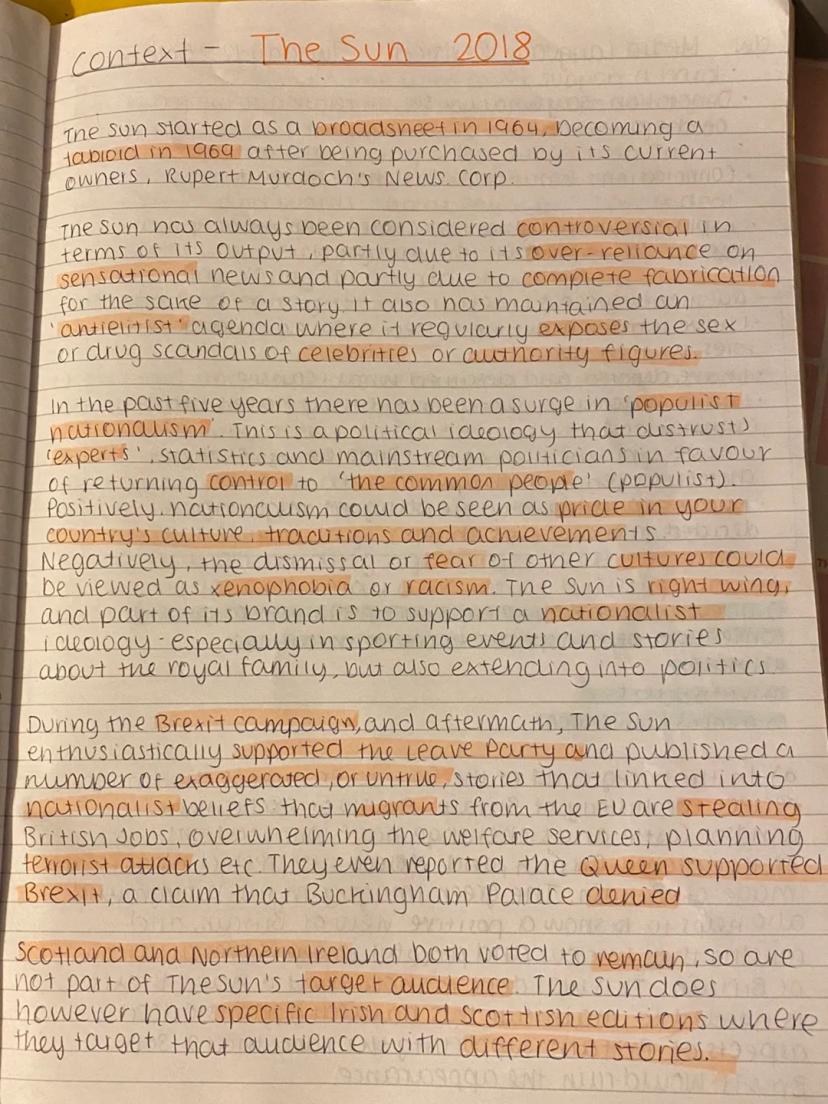 Context - The Sun 2018
The Sun started as a broadsheet in 1964, becoming a
tabloid in 1969 after being purchased by its current
owners, Rupert Murdoch's News. Corp.
The Sun has always been considered controversial in
terms of its output, partly due to its over-reliance on
sensational news and partly due to complete fabrication
for the sake of a story. It also has maintained an
'antielitist' agenda where it regularly exposes the sex
or drug scandals of celebrities or authority figures.
In the past five years there has been a surge in 'populist
nationalism'. This is a political ideology that distrusts
'experts', statistics and mainstream politicians in favour
of returning control to 'the common people' (populist).
Positively, nationalism could be seen as pride in your
country's culture, traditions and achievements.
Negatively, the dismissal or fear of other cultures could
be viewed as xenophobia or racism. The Sun is right wing,
and part of its brand is to support a nationalist
ideology - especially in sporting events and stories
about the royal family, but also extending into politics.
During the Brexit campaign, and aftermath, The Sun
enthusiastically supported the Leave Party and published a
number of exaggerated, or untrue, stories that linked into
nationalist beliefs that migrants from the EU are stealing
British Jobs, overwhelming the welfare services, planning
terrorist attacks etc. They even reported the Queen supported
Brexit, a claim that Buckingham Palace denied
Scotland and Northern Ireland both voted to remain, so are
not part of The Sun's target audience. The Sun does
however have specific Irish and Scottish editions where
they target that audience with different stories.